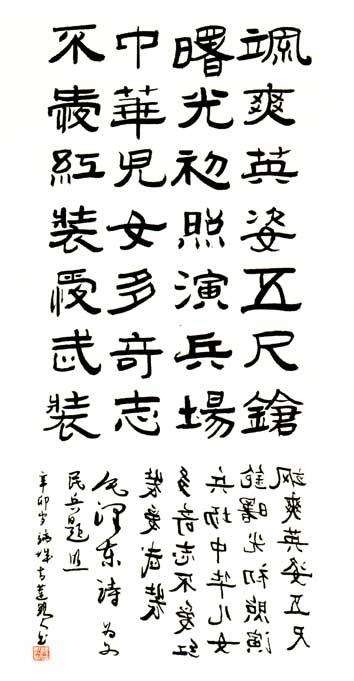 颯爽英姿五尺鎗
曙光初照演兵場
中華兒女多奇志
不愛紅裝愛武裝
飒爽英姿五尺
鎗曙光初照演
兵场中华儿女
多奇志不爱红
装爱武装
毛泽东诗 为女
民兵题照
辛卯岁